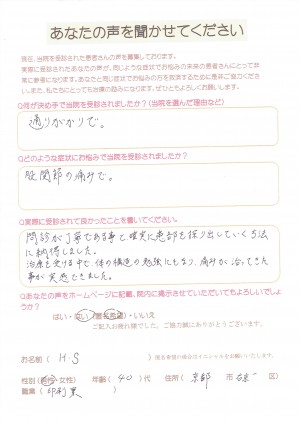 あなたの声を聞かせてください
現在、当院を受診された患者さんの声を募集しております。
実際に受診されたあなたの声が、同じような症状でお悩みの未来の患者さんにとって非
常に参考になります。あなたと同じ症状でお悩みの方を救済するために是非ご協力くださ
い。また、私たちにとっても治療の励みになります。ぜひともよろしくお願いします。
Q何が決め手で当院を受診されましたか？(当院を選んだ理由など)
通りがかりで。
Qどのような症状にお悩みで当院を受診されましたか？
股関節の痛みで。
Q実際に受診されて良かったことを書いてください。
問診が丁寧である事と確実に患部を探り出していく方法
に納得しました。
治療を受ける中で体の構造の勉強にもなり、痛みが治ってきた
事が実感できました。
Qあなたの声をホームページに記載、院内に掲示させていただいてもよろしいでしょ
うか？
はい・ (匿名希望)・いいえ
ご記入お疲れ様でした。ご協力誠にありがとうございます。
お名前( H・S )
匿名希望の場合はイニシャルをお願いいたします。
性別(男性・女性) 年齢( 40 )代 住所( 京都 市 区)
職業( 印刷業 )